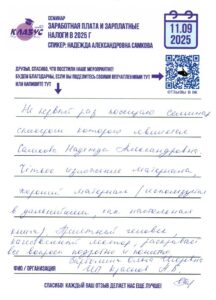 КЛАЗУС
СЕМИНАР
ЗАРАБОТНАЯ ПЛАТА И ЗАРПЛАТНЫЕ
НАЛОГИ В 2025 Г
СПИКЕР: НАДЕЖДА АЛЕКСАНДРОВНА САМКОВА
11.09
2025
ДРУЗЬЯ, СПАСИБО, ЧТО ПОСЕТИЛИ НАШЕ МЕРОПРИЯТИЕ!
БУДЕМ БЛАГОДАРНЫ, ЕСЛИ ВЫ ПОДЕЛИТЕСЬ СВОИМИ ВПЕЧАТЛЕНИЯМИ ТУТ
ИЛИ НАПИШИТЕ ТУТ
ОТЗЫВЫ В ВК
Не первый раз посещаю семинар
спикером которого является
Самкова Надежда Александровна.
Чёткое изложение материала,
хороший материал (используем
в дальнейшем, как настольная
книга). Приятный человек,
лектор, раскрывает
все вопросы подробно и понятно
Ольга
ФИО / ОРГАНИЗАЦИЯ
ИП А.В.
СПАСИБО! КАЖДЫЙ ВАШ ОТЗЫВ ДЕЛАЕТ НАС ЕЩЕ ЛУЧШЕ!